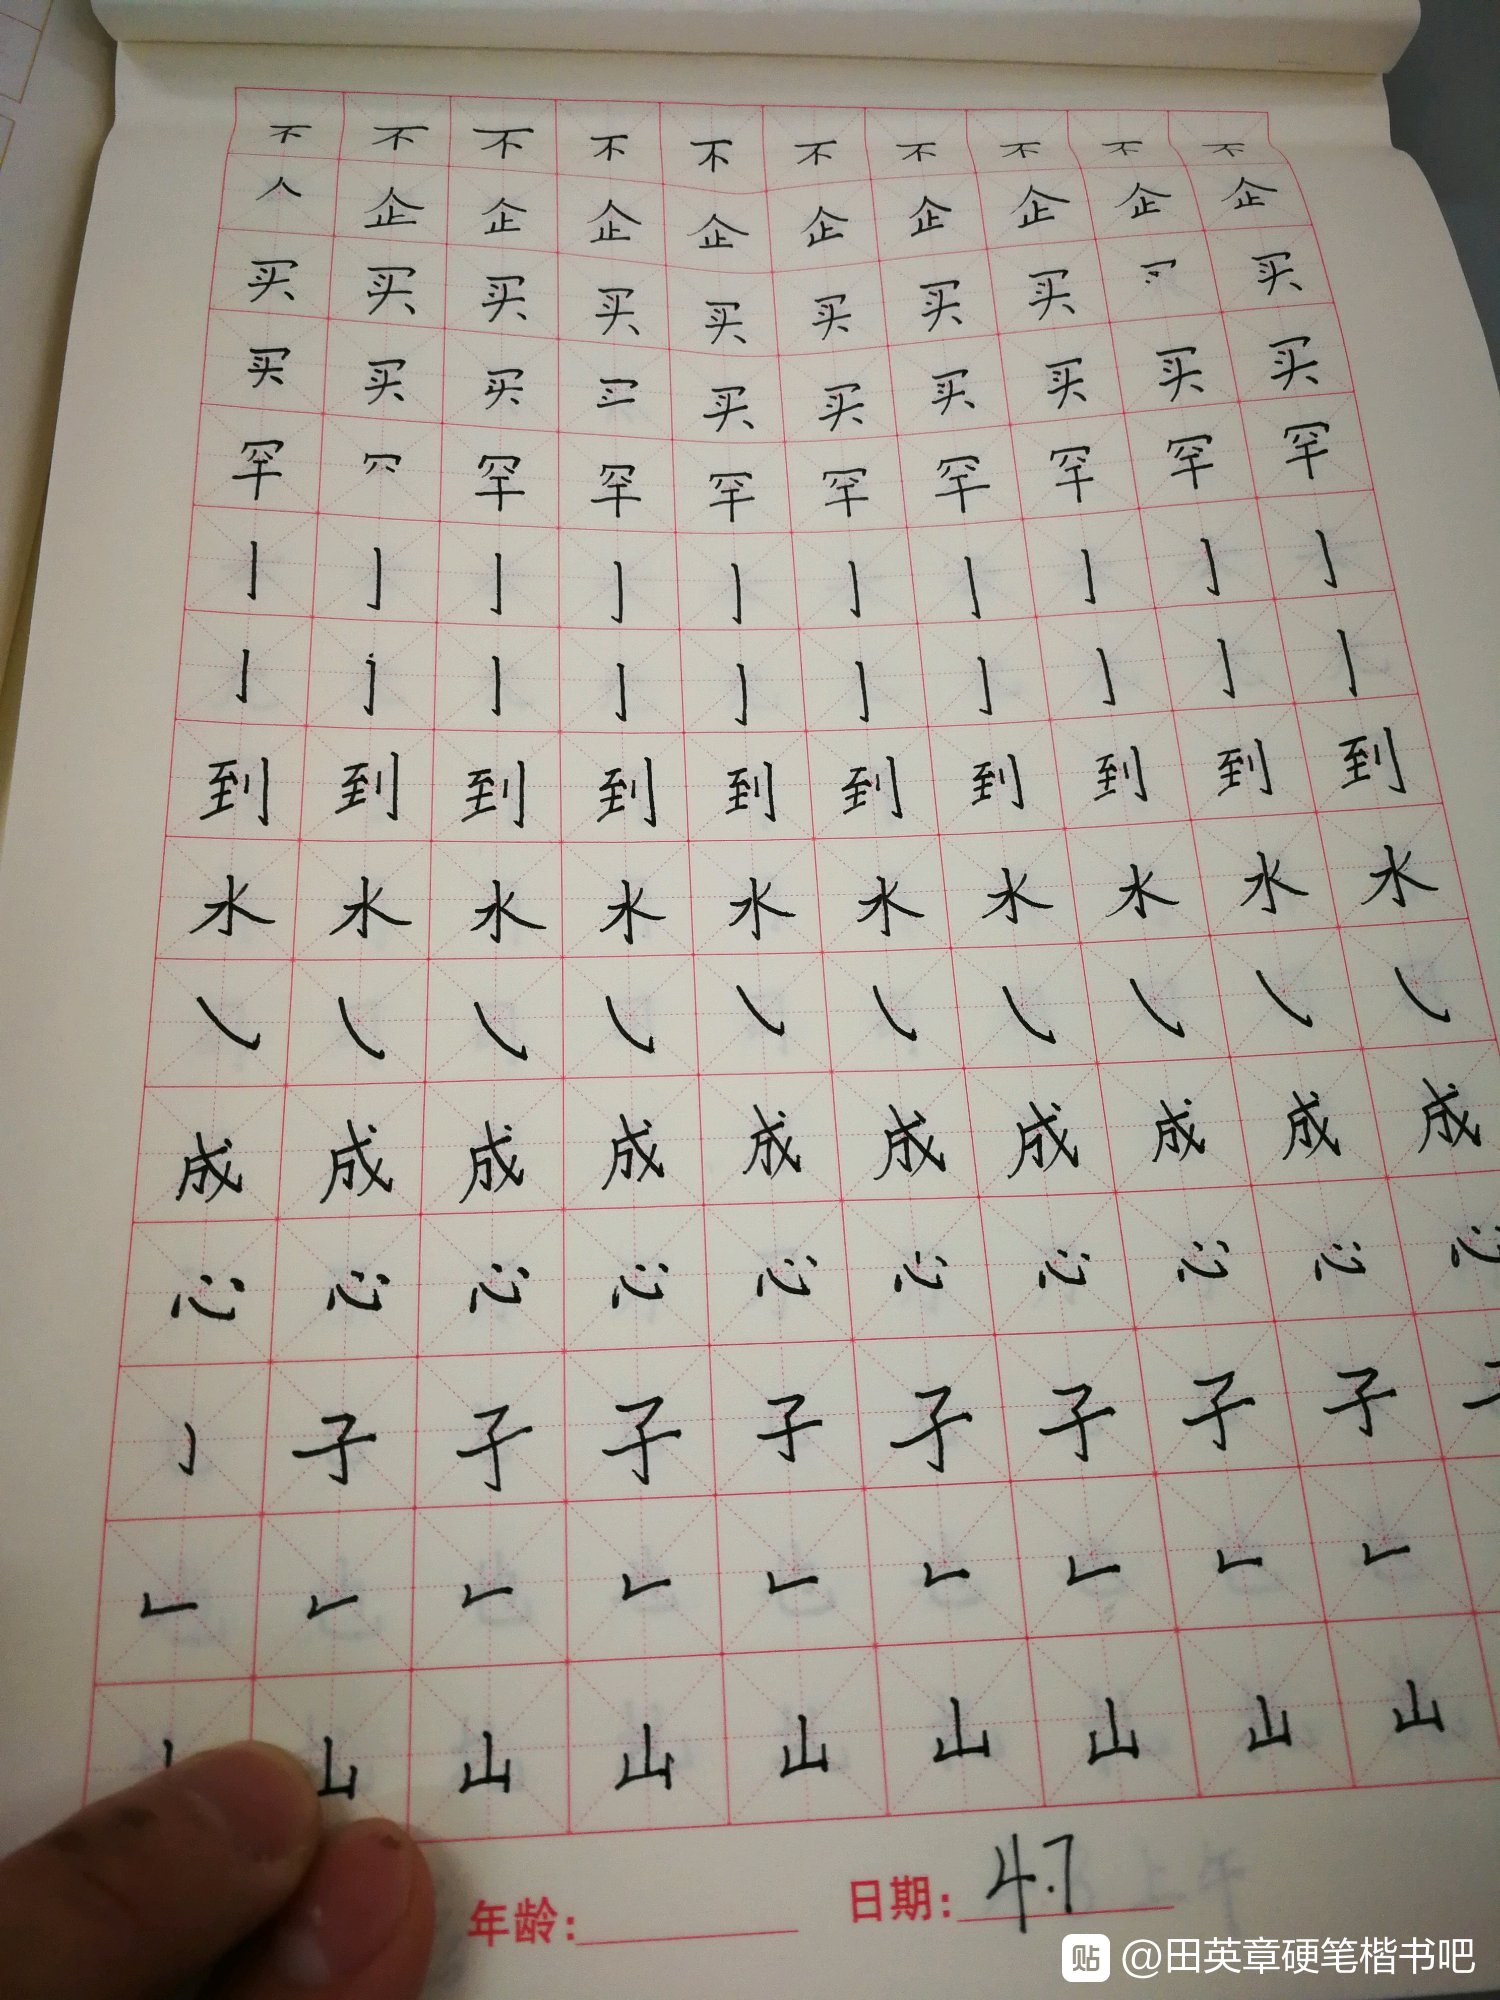 不不不不不不不不不不
人企企企企企企企企企
买买买买买买买买 买
买买买 买买买买买买
罕 罕罕罕罕罕罕罕罕
亅亅亅亅亅亅亅亅亅亅
亅亅亅亅亅亅亅亅亅
到到到到到到到到到到
水水水水水水水水水水
㇂㇂㇂㇂㇂㇂㇂㇂㇂㇂
成成成成成成成成成成
心心心心心心心心心心
子子子子子子子子
山山山山山山山山
年龄: 日期: 4.7
贴 @田英章硬笔楷书吧